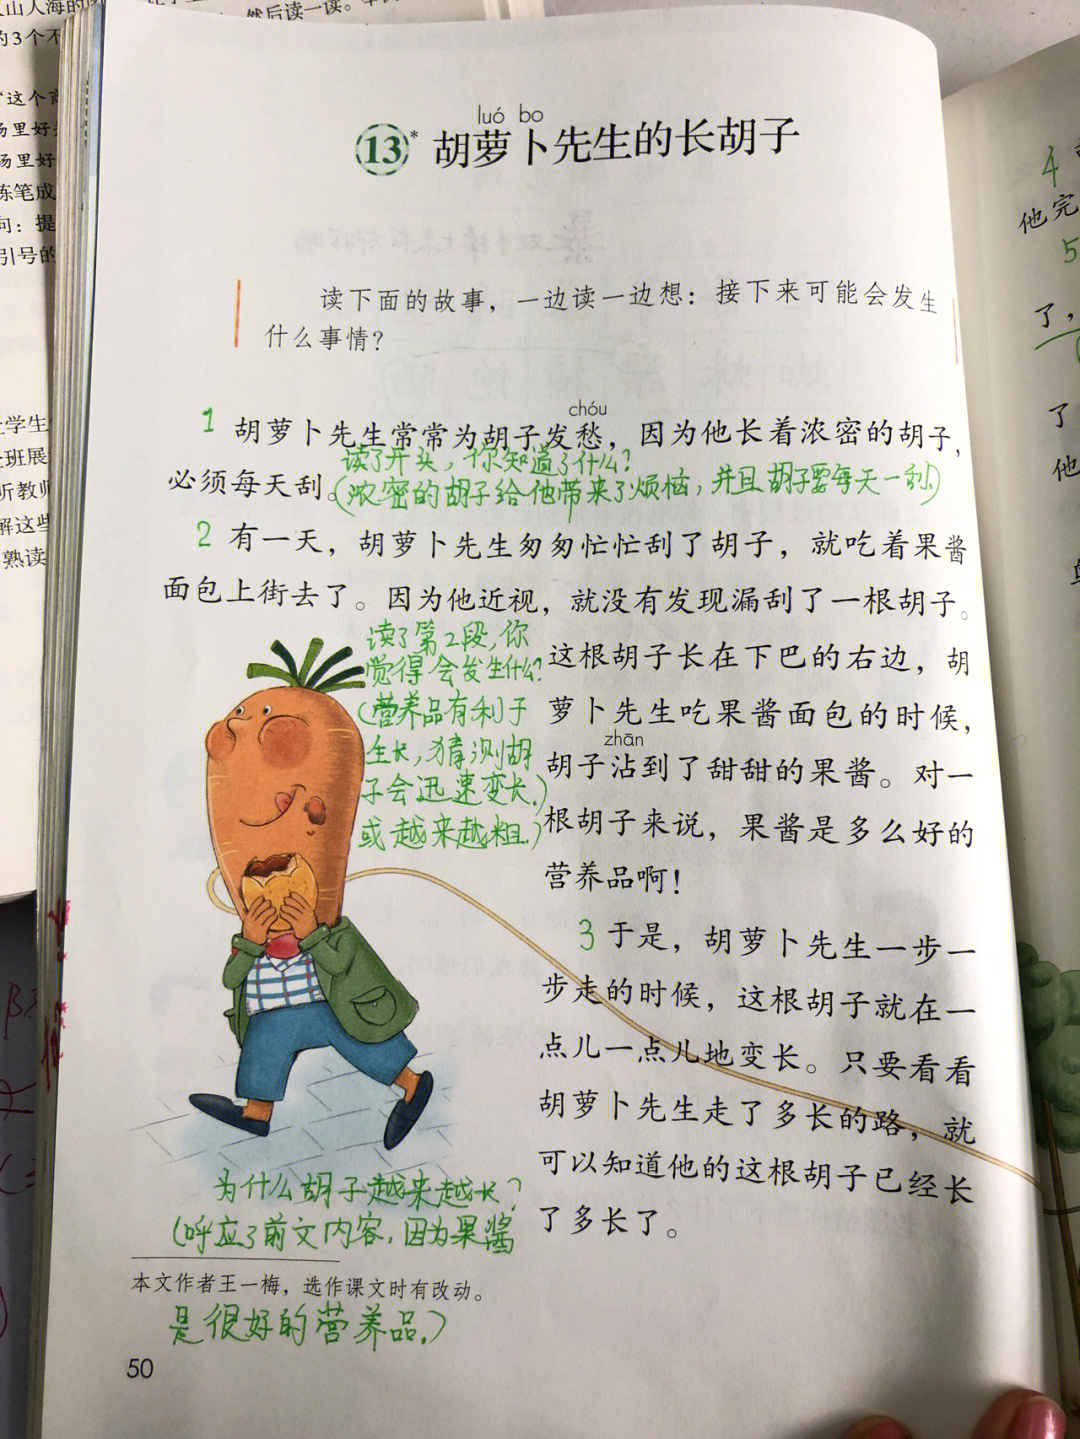 luó bo
13* 胡萝卜先生的长胡子
读下面的故事，一边读一边想：接下来可能会发生
什么事情？
chóu
1 胡萝卜先生常常为胡子发愁，因为他长着浓密的胡子，
读了开头，你知道了什么？
必须每天刮。
（浓密的胡子给他带来了烦恼，并且胡子要每天一刮。）
2 有一天，胡萝卜先生匆匆忙忙刮了胡子，就吃着果酱
面包上街去了。因为他近视，就没有发现漏刮了一根胡子。
这根胡子长在下巴的右边，胡
萝卜先生吃果酱面包的时候，
zhān
胡子沾到了甜甜的果酱。对一
根胡子来说，果酱是多么好的
营养品啊！
读了第2段，你
觉得会发生什么？
（营养品有利于
生长，猜测胡
子会迅速变长。）
或越来越粗。）
3 于是，胡萝卜先生一步一
步走的时候，这根胡子就在一
点儿一点儿地变长。只要看看
胡萝卜先生走了多长的路，就
可以知道他的这根胡子已经长
了多长了。
为什么胡子越来越长？
（呼应了前文内容，因为果酱
本文作者王一梅，选作课文时有改动。
是很好的营养品。）
50
人山人海的
然后读一读。
的3个不
“这个商
场里好
场里好
练笔成
句：提
引号的
让学生
班展
听教师
解这些
熟读
4
他完
5
了，
了
他